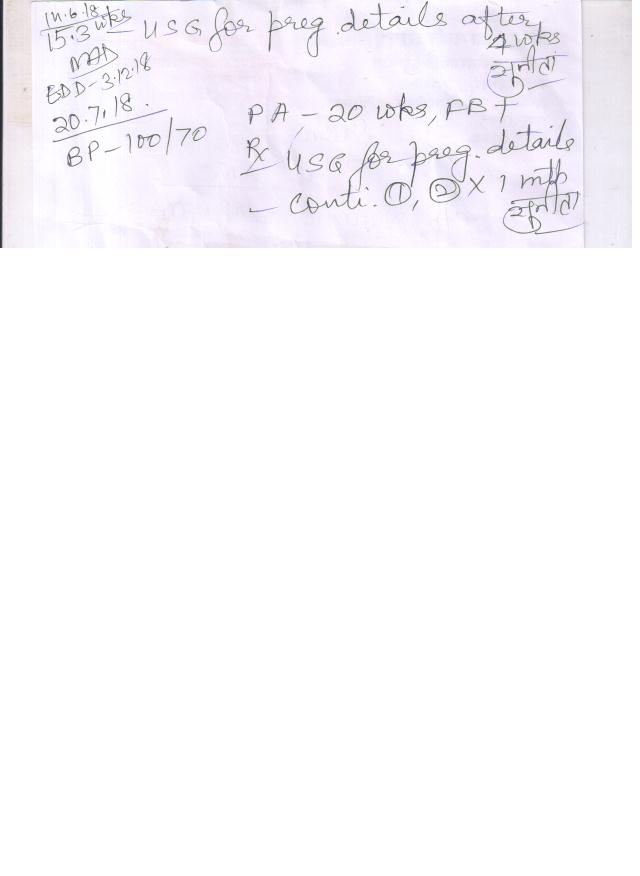 14.6.18
15.3 wks
MAD
EDD-3.12.18
- USG for preg. details after
4 wks
सुनीता
20.7.18.
BP-100/70
PA - 20 wks, FBT
Rx USG for preg. details
- conti. ①, ② x 1 mth
सुनीता